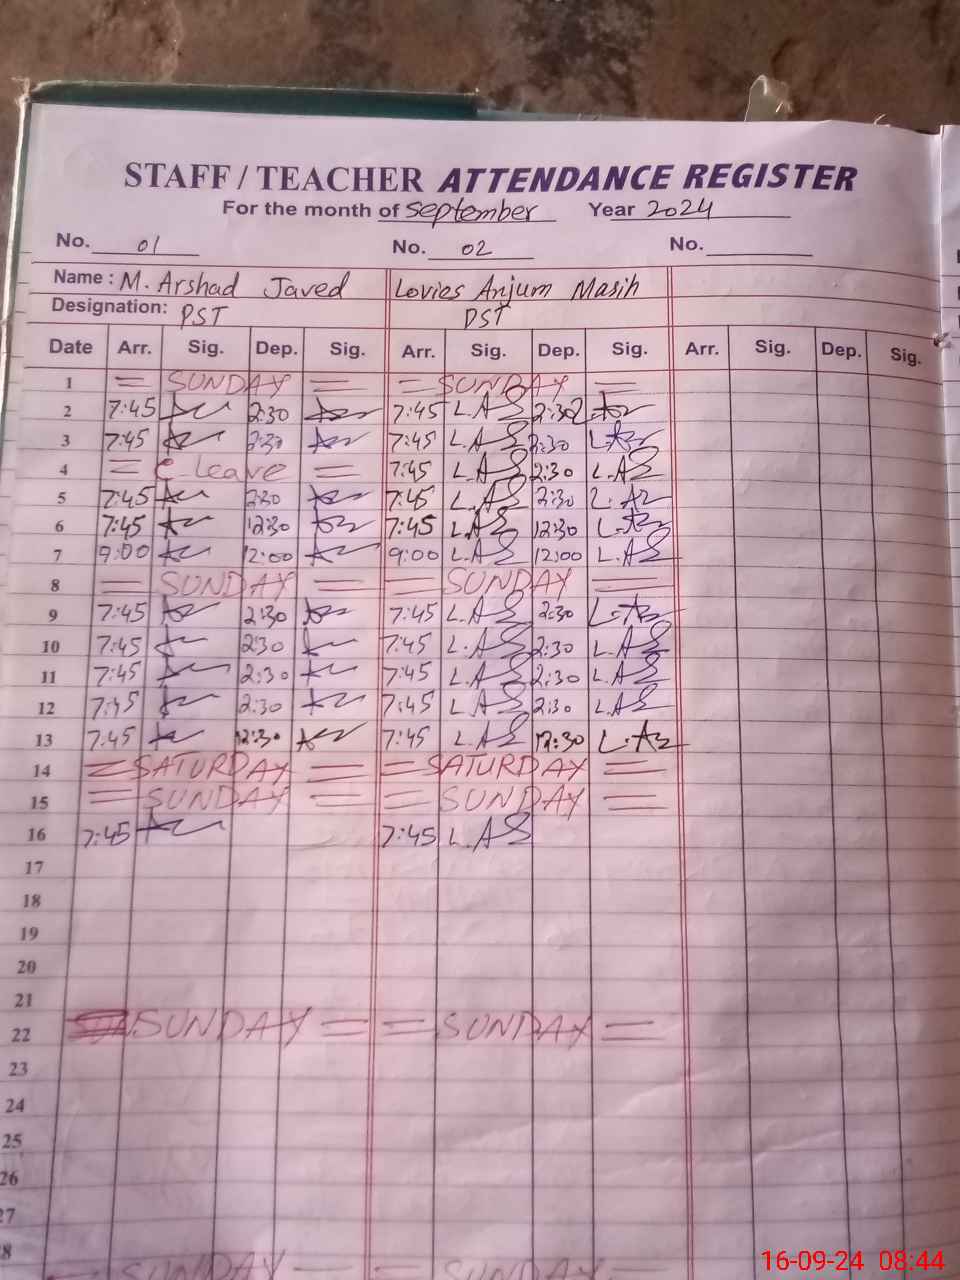 STAFF / TEACHER ATTENDANCE REGISTER
For the month of September Year 2024
No. 01 No. 02 No.
Name : M. Arshad Javed Lovies Anjum Masih
Designation: PST PST
Date Arr. Sig. Dep. Sig. Arr. Sig. Dep. Sig. Arr. Sig. Dep. Sig.
1 = SUNDAY = = SUNDAY =
2 7:45 2:30 7:45 L.AS 2:30
3 7:45 2:30 7:45 L.AS 2:30
4 = C leave = 7:45 L.AS 2:30 L.AS
5 7:45 2:30 7:45 L.AS 2:30
6 7:45 12:30 7:45 L.AS 12:30
7 9:00 12:00 9:00 L.AS 12:00 L.AS
8 = SUNDAY = = SUNDAY =
9 7:45 2:30 7:45 L.AS 2:30
10 7:45 2:30 7:45 L.AS 2:30 L.AS
11 7:45 2:30 7:45 L.AS 2:30 L.AS
12 7:45 2:30 7:45 L.AS 2:30 L.AS
13 7:45 12:30 7:45 L.AS 12:30
14 = SATURDAY = = SATURDAY =
15 = SUNDAY = = SUNDAY =
16 7:45 7:45 L.AS
17
18
19
20
21
22 SUNDAY = = SUNDAY =
23
24
25
26
27
8 SUNDAY = = SUNDAY
16-09-24 08:44